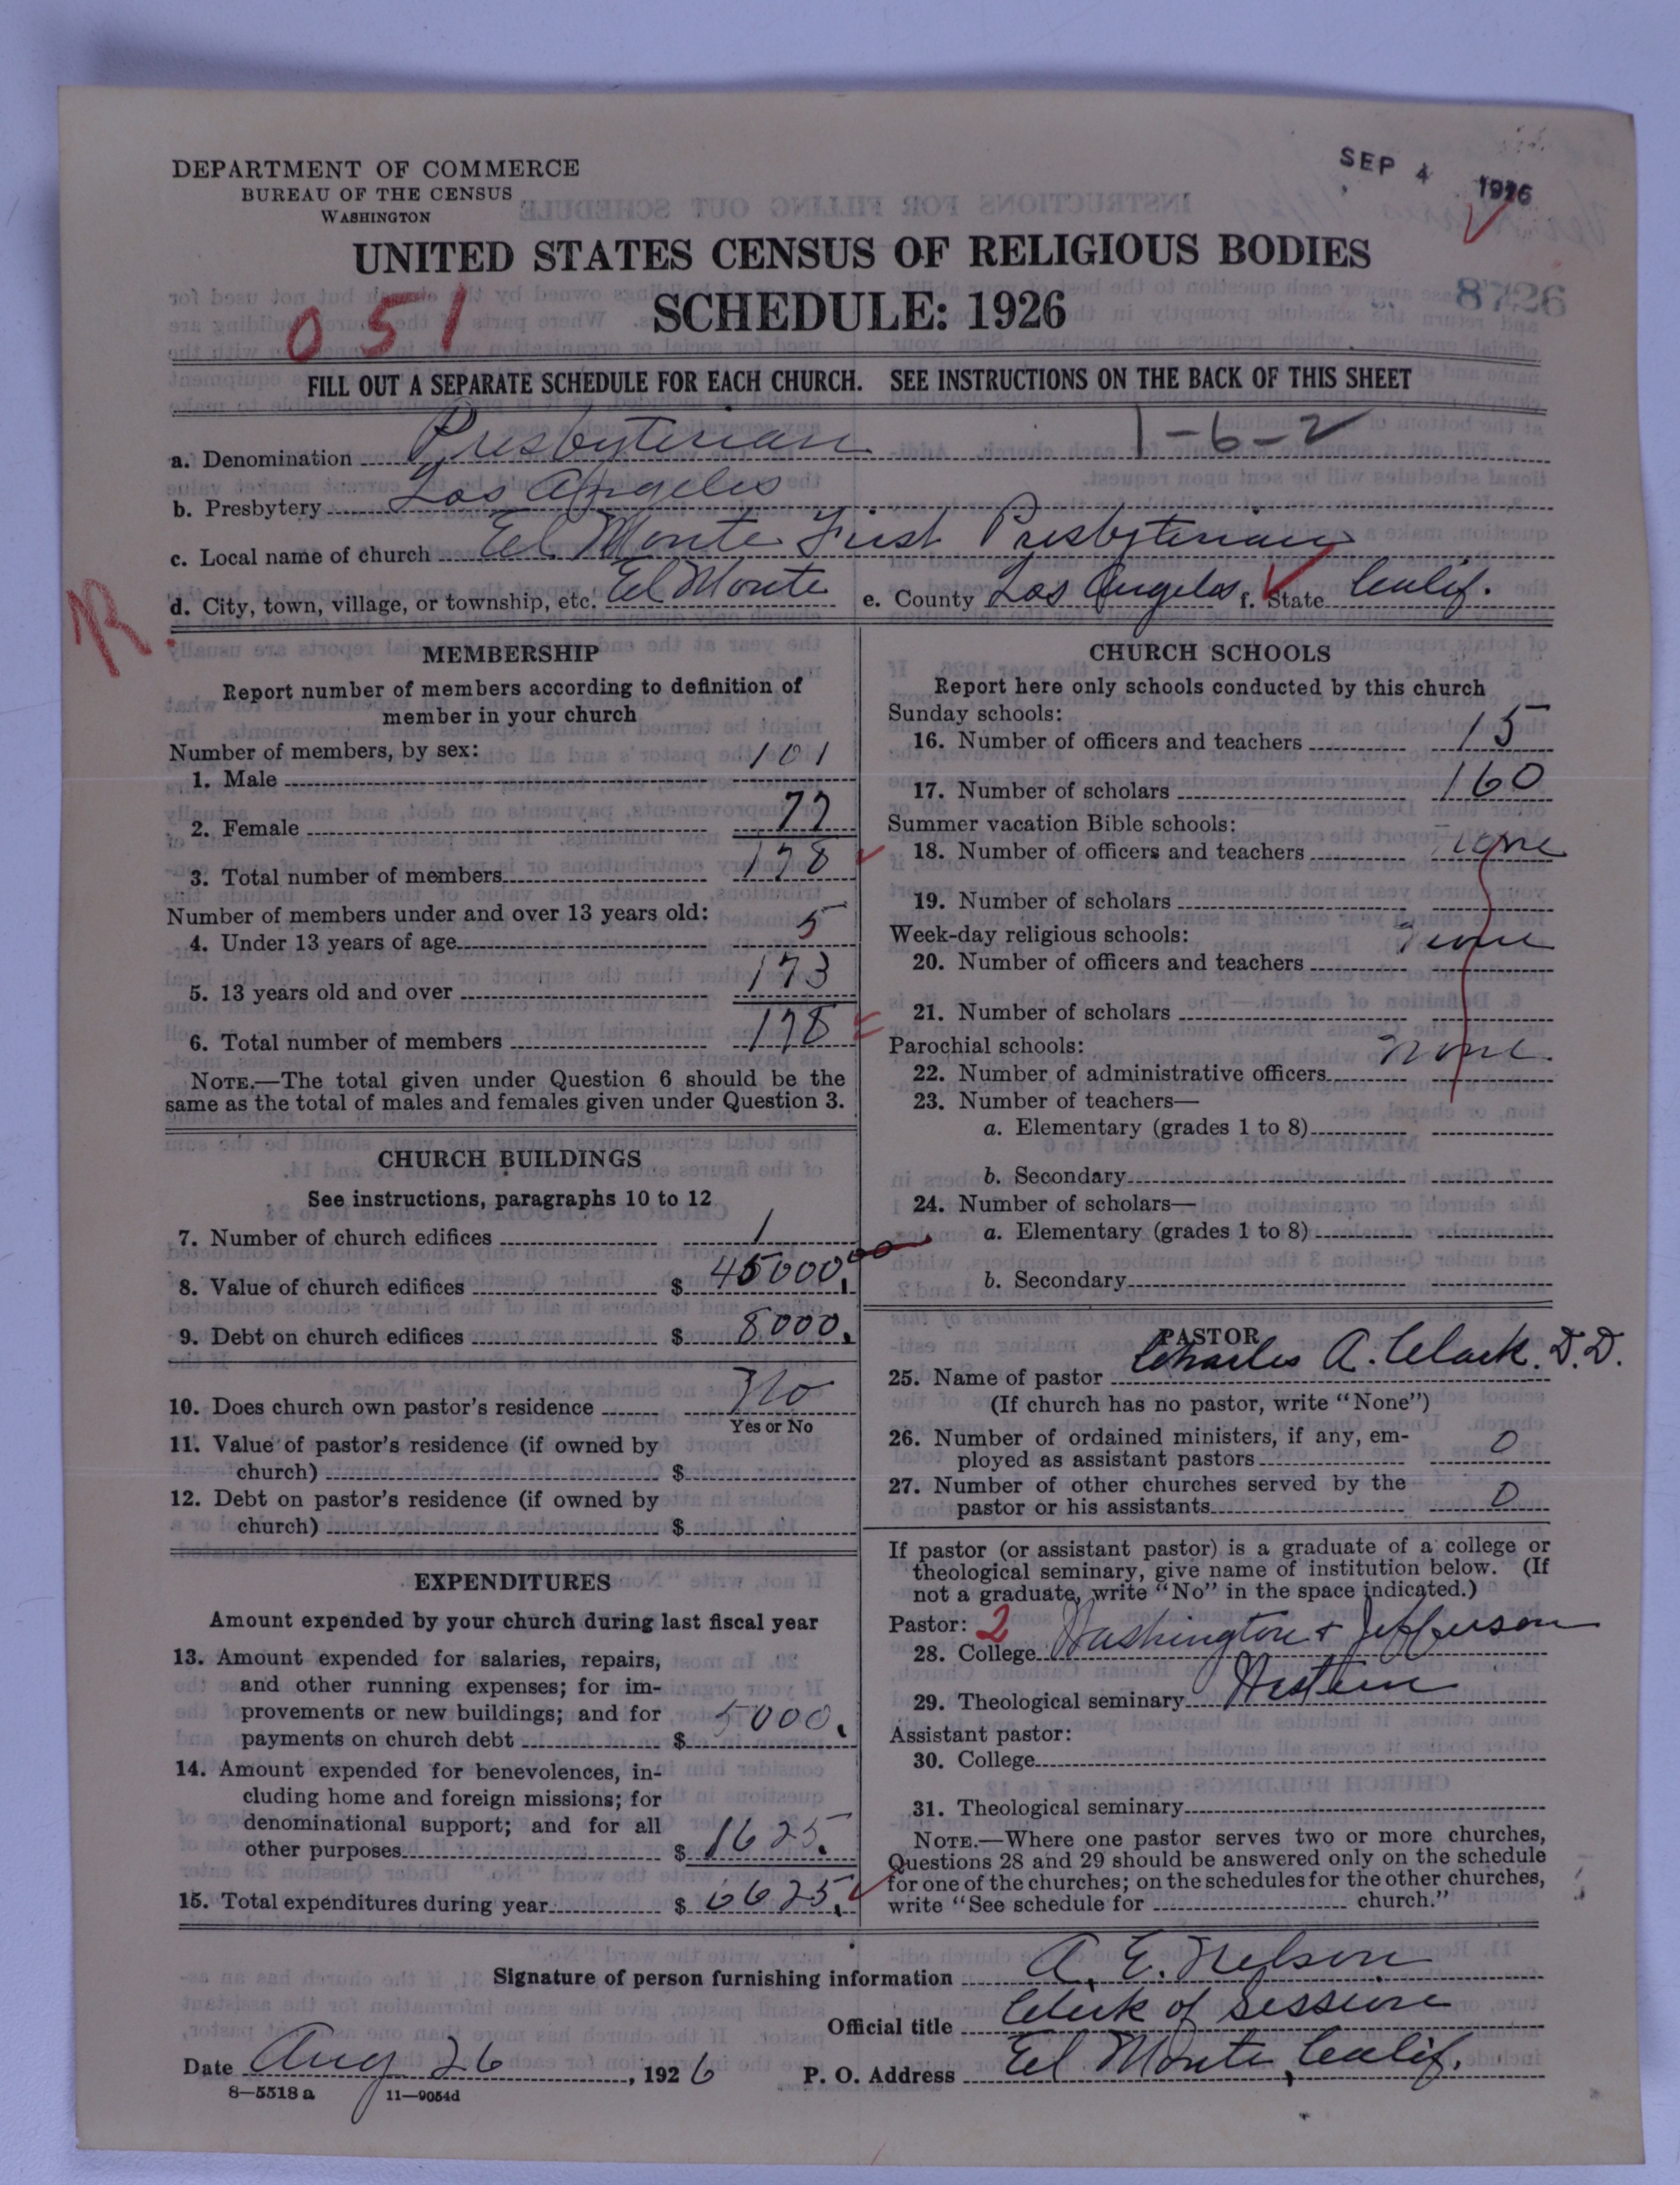 DEPARTMENT OF COMMERCE
BUREAU OF THE CENSUS
WASHINGTON
SEP 4 1926
UNITED STATES CENSUS OF RELIGIOUS BODIES
SCHEDULE: 1926
051
8726
FILL OUT A SEPARATE SCHEDULE FOR EACH CHURCH. SEE INSTRUCTIONS ON THE BACK OF THIS SHEET
1-6-2
a. Denomination Presbyterian
b. Presbytery Los Angeles
c. Local name of church El Monte First Presbyterian
d. City, town, village, or township, etc. El Monte e. County Los Angeles f. State Calif.
R
MEMBERSHIP
Report number of members according to definition of
member in your church
Number of members, by sex:
1. Male 101
2. Female 77
3. Total number of members 178
Number of members under and over 13 years old:
4. Under 13 years of age 5
5. 13 years old and over 173
6. Total number of members 178
NOTE.—The total given under Question 6 should be the
same as the total of males and females given under Question 3.
CHURCH BUILDINGS
See instructions, paragraphs 10 to 12
7. Number of church edifices 1
8. Value of church edifices $ 45000.00
9. Debt on church edifices $ 8000.
10. Does church own pastor's residence No
Yes or No
11. Value of pastor's residence (if owned by
church) $
12. Debt on pastor's residence (if owned by
church) $
EXPENDITURES
Amount expended by your church during last fiscal year
13. Amount expended for salaries, repairs,
and other running expenses; for im-
provements or new buildings; and for
payments on church debt $ 5000.
14. Amount expended for benevolences, in-
cluding home and foreign missions; for
denominational support; and for all
other purposes $ 1625.
15. Total expenditures during year $ 6625.
CHURCH SCHOOLS
Report here only schools conducted by this church
Sunday schools:
16. Number of officers and teachers 15
17. Number of scholars 160
Summer vacation Bible schools:
18. Number of officers and teachers none
19. Number of scholars
Week-day religious schools:
20. Number of officers and teachers none
21. Number of scholars
Parochial schools:
22. Number of administrative officers none.
23. Number of teachers—
a. Elementary (grades 1 to 8)
b. Secondary
24. Number of scholars—
a. Elementary (grades 1 to 8)
b. Secondary
PASTOR
25. Name of pastor Charles A. Clark. D.D.
(If church has no pastor, write "None")
26. Number of ordained ministers, if any, em-
ployed as assistant pastors 0
27. Number of other churches served by the
pastor or his assistants 0
If pastor (or assistant pastor) is a graduate of a college or
theological seminary, give name of institution below. (If
not a graduate, write "No" in the space indicated.)
Pastor: 2
28. College Washington & Jefferson
29. Theological seminary Western
Assistant pastor:
30. College
31. Theological seminary
NOTE.—Where one pastor serves two or more churches,
Questions 28 and 29 should be answered only on the schedule
for one of the churches; on the schedules for the other churches,
write "See schedule for church."
Signature of person furnishing information A. E. Nelson
Official title Clerk of Session
Date Aug 26, 1926 P. O. Address El Monte, Calif.
8-5518 a 11-9054d